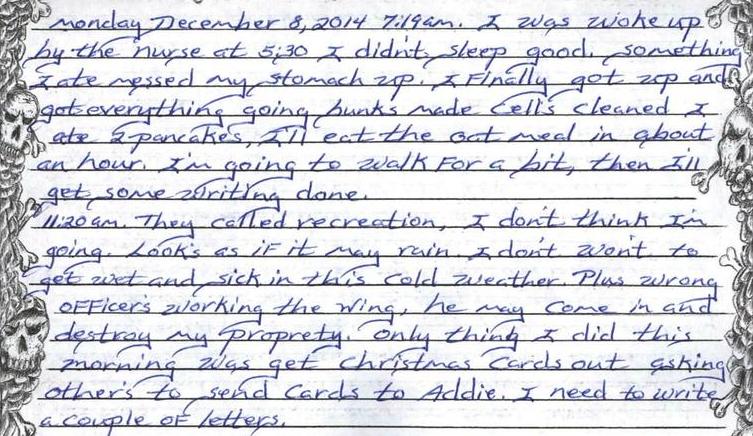 monday December 8, 2014 7:19am. I was woke up
by the nurse at 5:30 I didn't sleep good. something
I ate messed my stomach up. I Finally got up and
got everything going bunks made Cell's cleaned I
ate 2 pancakes, I'll eat the oat meal in about
an hour. I'm going to walk For a bit, then I'll
get some writing done.
11:20am. They called recreation, I don't think I'm
going. Look's as if it may rain. I don't won't to
get wet and sick in this cold weather. Plus wrong
officer's working the wing, he may come in and
destroy my proprety. only thing I did this
morning was get Christmas Cards out asking
other's to send Cards to Addie. I need to write
a couple of letters.